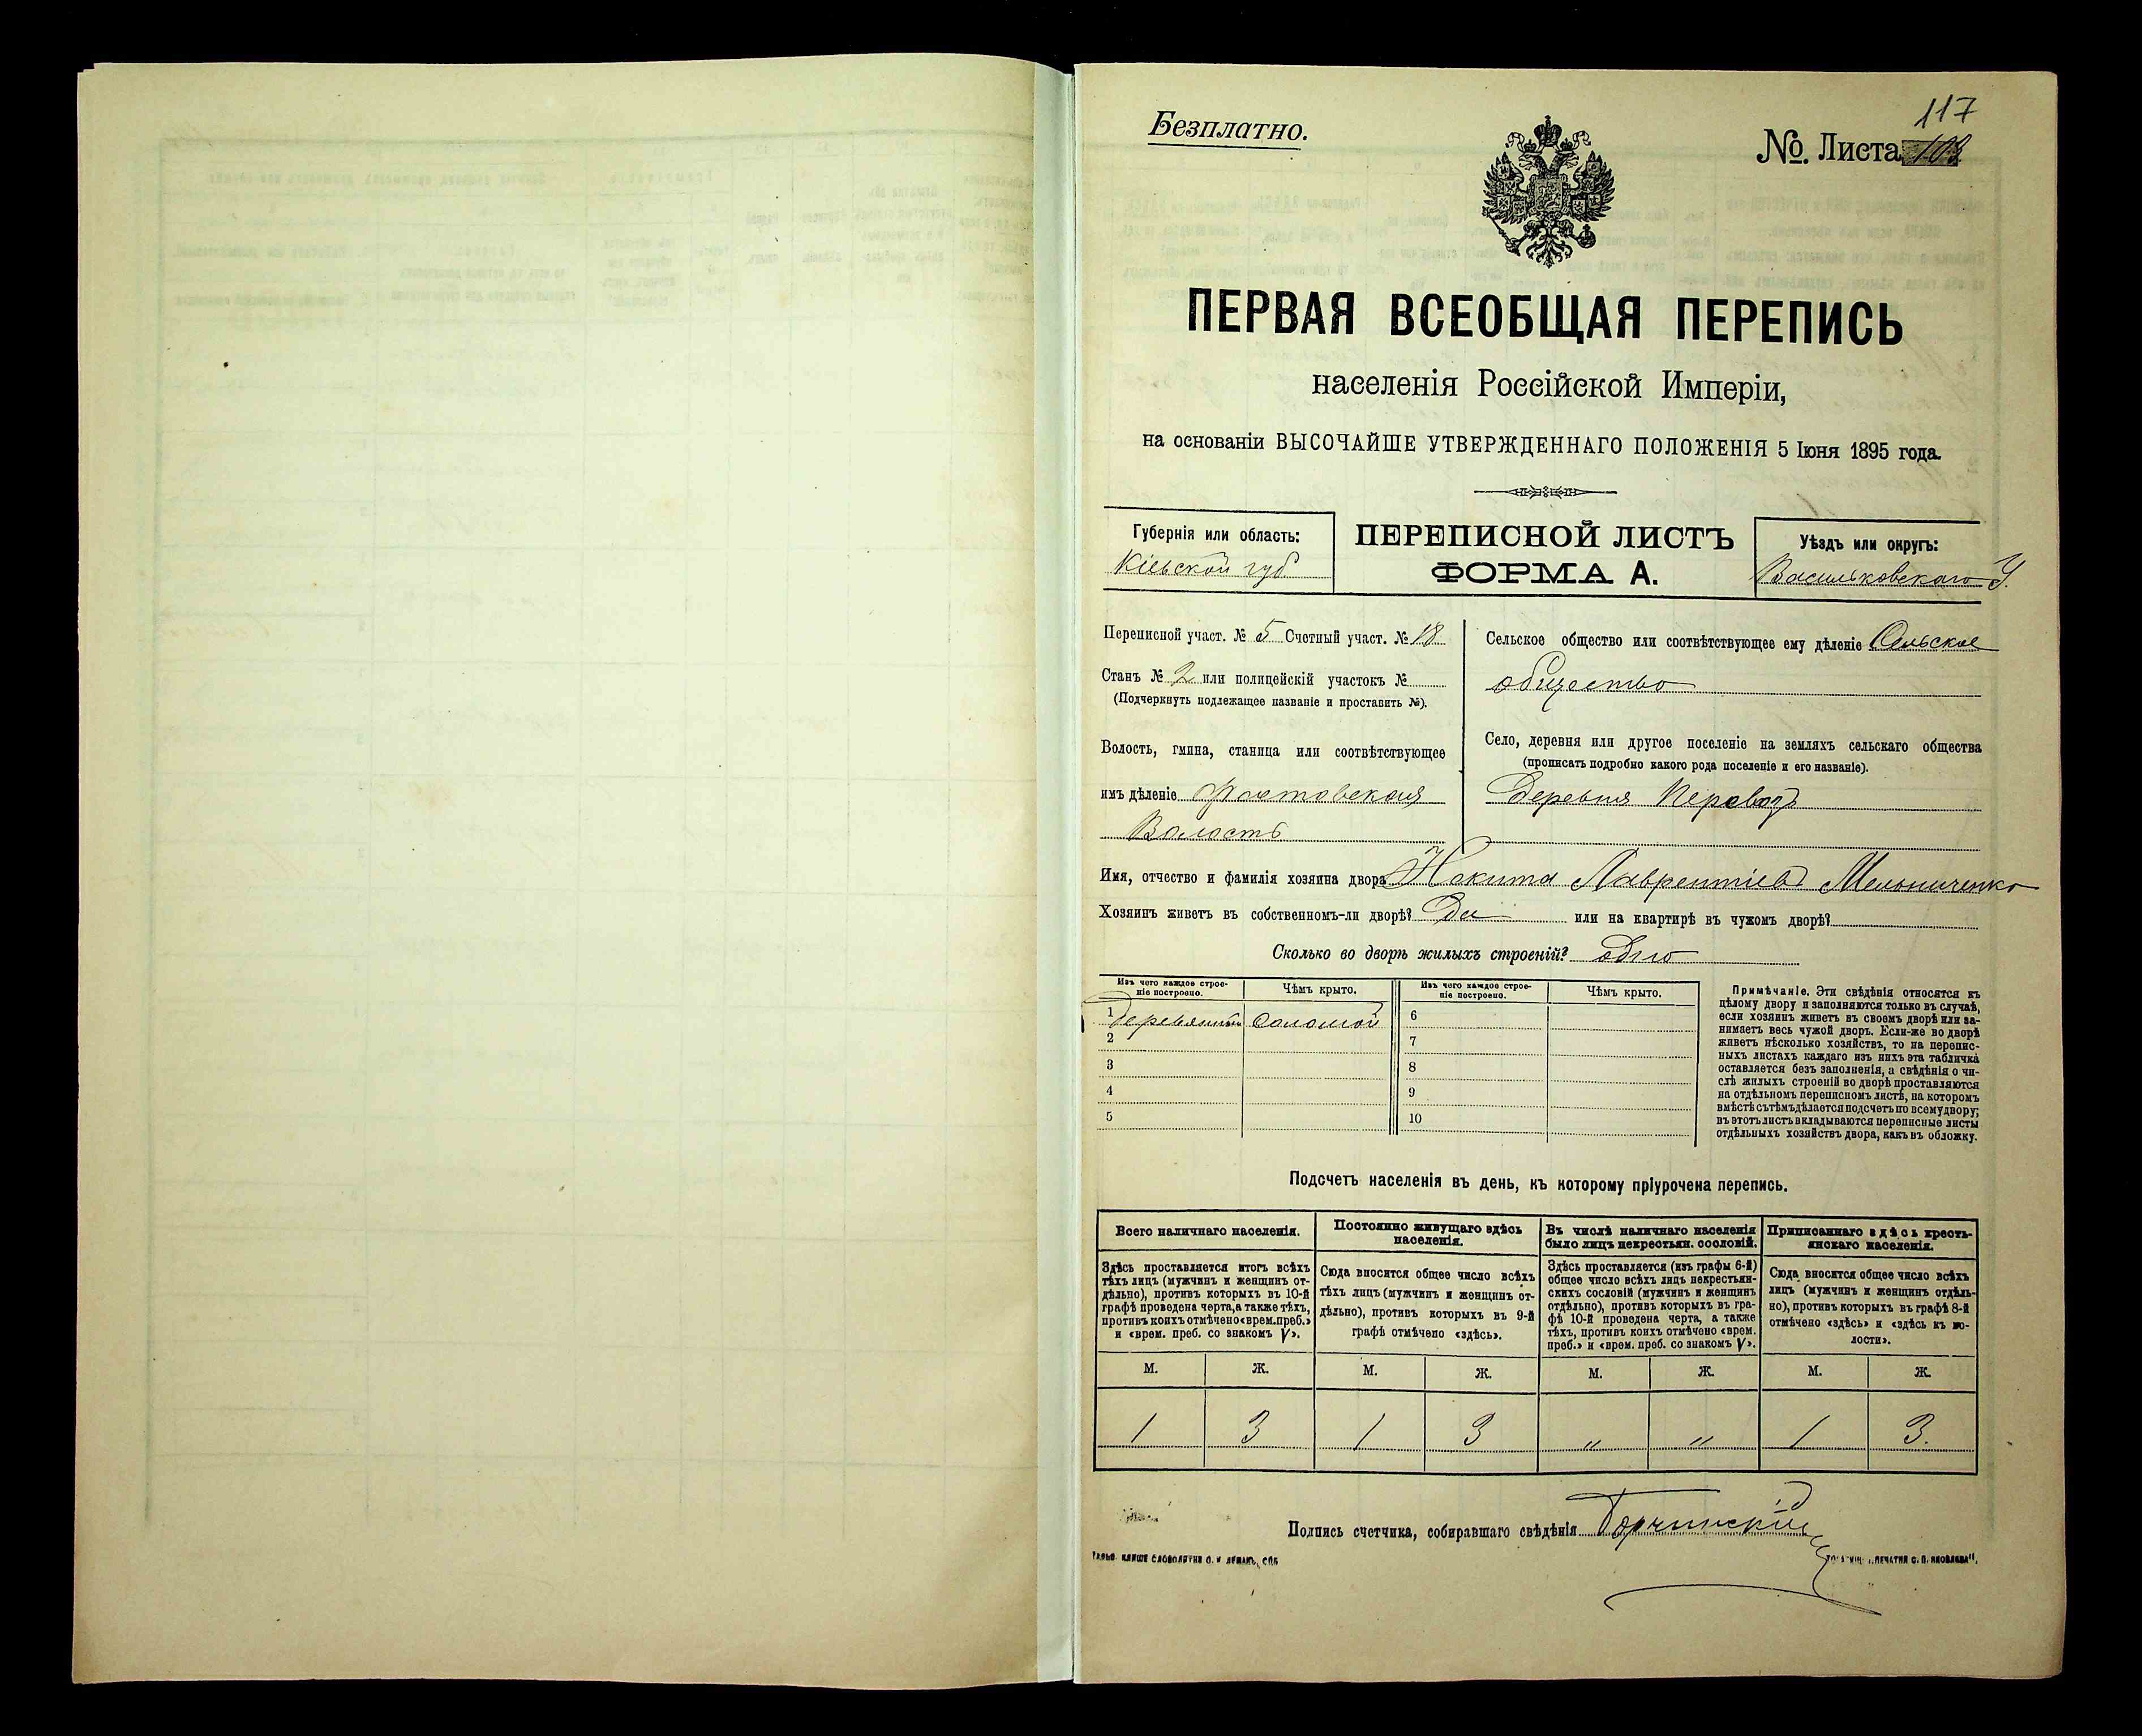 117
Безплатно.
№. Листа 103
ПЕРВАЯ ВСЕОБЩАЯ ПЕРЕПИСЬ
населенія Россійской Имперіи,
на основаніи ВЫСОЧАЙШЕ УТВЕРЖДЕННАГО ПОЛОЖЕНІЯ 5 Іюня 1895 года.
Губернія или область:
Кіевской губ.
ПЕРЕПИСНОЙ ЛИСТЪ
ФОРМА А.
Уѣздъ или округъ:
Васильковскаго У.
Переписной участ. № 5 Счетный участ. № 18
Станъ № 2 или полицейскій участокъ №
(Подчеркнуть подлежащее названіе и проставить №).
Волость, гмина, станица или соотвѣтствующее
имъ дѣленіе Фастовская
Волость
Сельское общество или соотвѣтствующее ему дѣленіе Сельское
общество
Село, деревня или другое поселеніе на земляхъ сельскаго общества
(прописать подробно какого рода поселеніе и его названіе).
Деревня Перевозъ
Имя, отчество и фамилія хозяина двора Никита Лаврентіевъ Мельниченко
Хозяинъ живетъ въ собственномъ-ли дворѣ? Да или на квартирѣ въ чужомъ дворѣ?
Сколько во дворѣ жилыхъ строеній? одно
Изъ чего каждое строе-
ніе построено.
Чѣмъ крыто.
Изъ чего каждое строе-
ніе построено.
Чѣмъ крыто.
1 Деревянный соломой 6
2 7
3 8
4 9
5 10
Примѣчаніе. Эти свѣдѣнія относятся къ
цѣлому двору и заполняются только въ случаѣ,
если хозяинъ живетъ въ своемъ дворѣ или за-
нимаетъ весь чужой дворъ. Если-же во дворѣ
живетъ нѣсколько хозяйствъ, то на перепис-
ныхъ листахъ каждаго изъ нихъ эта табличка
оставляется безъ заполненія, а свѣдѣнія о чи-
слѣ жилыхъ строеній во дворѣ проставляются
на отдѣльномъ переписномъ листѣ, на которомъ
вмѣстѣ съ тѣмъ дѣлается подсчетъ по всему двору;
въ этотъ листъ вкладываются переписные листы
отдѣльныхъ хозяйствъ двора, какъ въ обложку.
Подсчетъ населенія въ день, къ которому пріурочена перепись.
Всего наличнаго населенія.
Здѣсь проставляется итогъ всѣхъ
тѣхъ лицъ (мужчинъ и женщинъ от-
дѣльно), противъ которыхъ въ 10-й
графѣ проведена черта, а также тѣхъ,
противъ коихъ отмѣчено «врем. преб.»
и «врем. преб. со знакомъ V».
Постоянно живущаго здѣсь
населенія.
Сюда вносится общее число всѣхъ
тѣхъ лицъ (мужчинъ и женщинъ от-
дѣльно), противъ которыхъ въ 9-й
графѣ отмѣчено «здѣсь».
Въ числѣ наличнаго населенія
было лицъ некрестьян. сословій.
Здѣсь проставляется (изъ графы 6-й)
общее число всѣхъ лицъ некрестьян-
скихъ сословій (мужчинъ и женщинъ
отдѣльно), противъ которыхъ въ гра-
фѣ 10-й проведена черта, а также
тѣхъ, противъ коихъ отмѣчено «врем.
преб.» и «врем. преб. со знакомъ V».
Приписаннаго здѣсь кресть-
янскаго населенія.
Сюда вносится общее число всѣхъ
лицъ (мужчинъ и женщинъ отдѣль-
но), противъ которыхъ въ графѣ 8-й
отмѣчено «здѣсь» и «здѣсь къ во-
лости».
М. Ж. М. Ж. М. Ж. М. Ж.
1 3 1 3 „ „ 1 3.
Подпись счетчика, собиравшаго свѣдѣнія